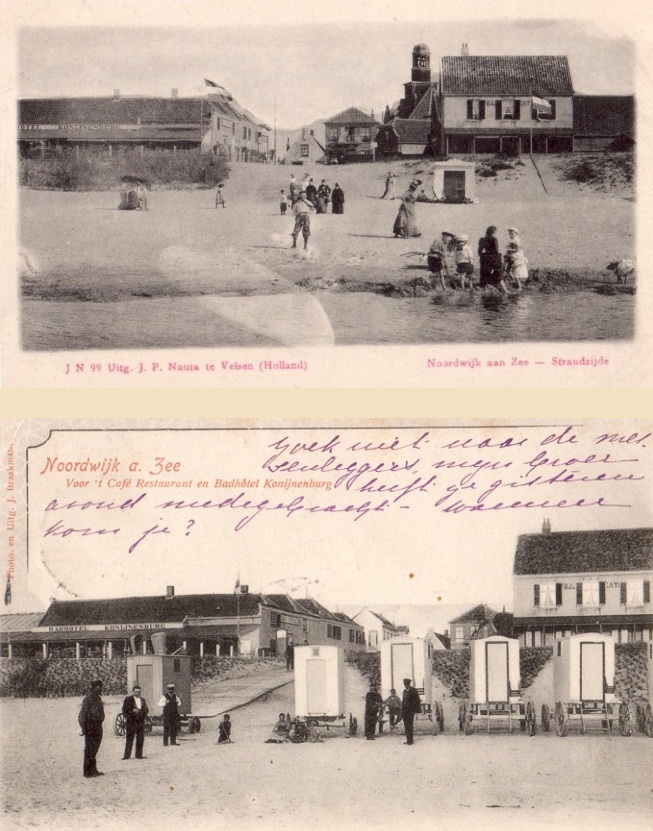 HOTEL KONIJNENBURG
J N 99 Uitg. J. P. Nauta te Velsen (Holland)
Noordwijk aan Zee — Strandzijde
Photo. en Uitg. J. Braakman.
Noordwijk a. Zee
Voor 't Café Restaurant en Badhôtel Konijnenburg
Zoek niet naar de
mijn broer
heeft ze gisteren
avond medegebracht – wanneer
kom je?
BADHOTEL KONIJNENBURG